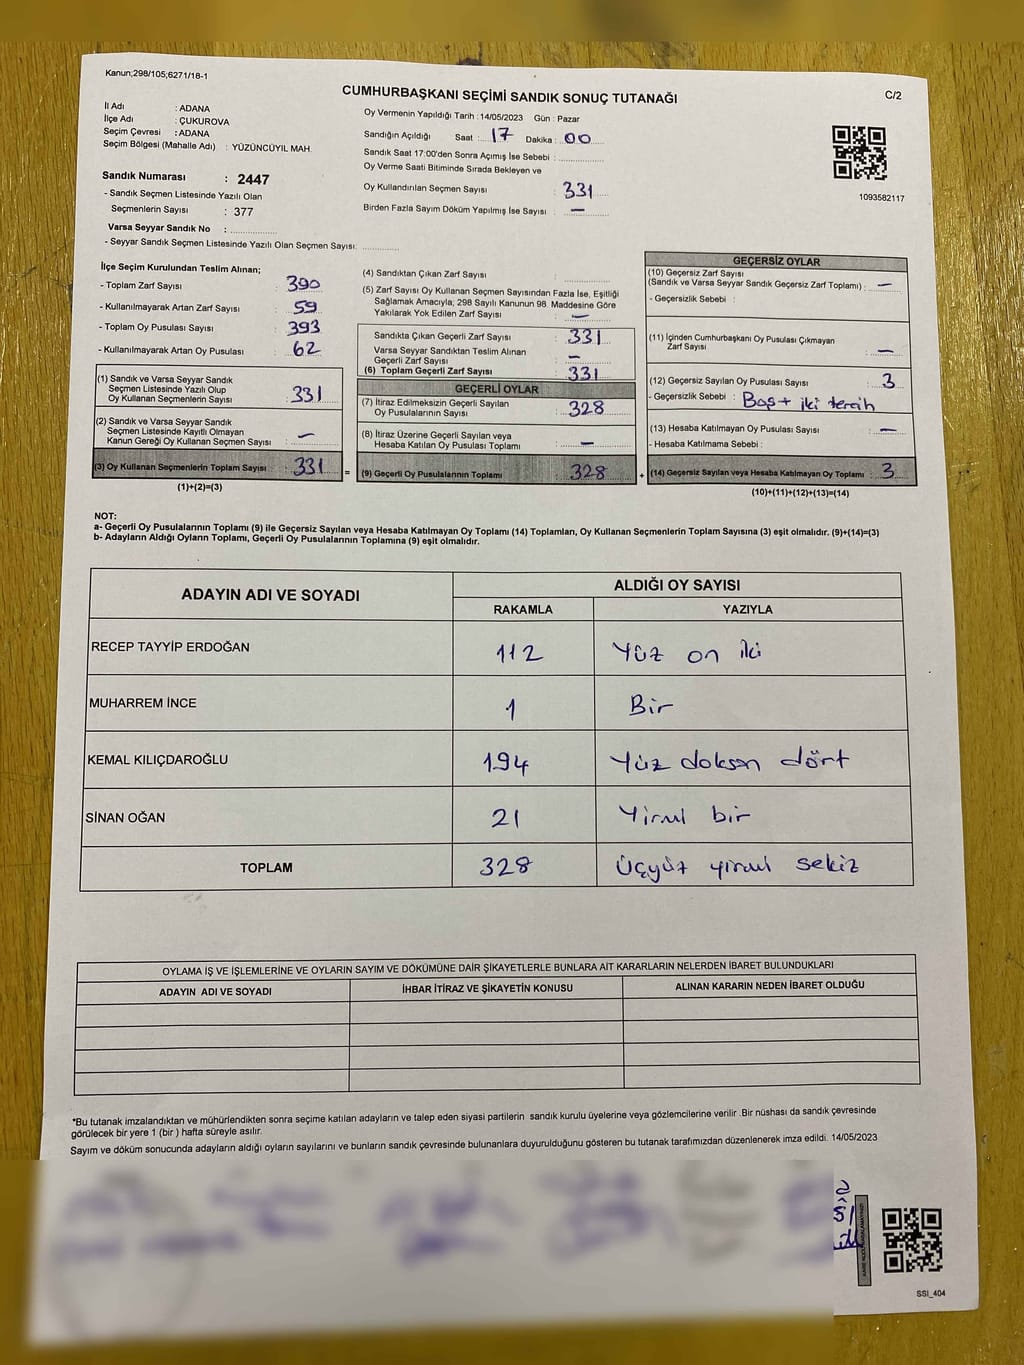 Kanun;298/105;6271/18-1
CUMHURBAŞKANI SEÇİMİ SANDIK SONUÇ TUTANAĞI
C/2
İl Adı : ADANA
İlçe Adı : ÇUKUROVA
Seçim Çevresi : ADANA
Seçim Bölgesi (Mahalle Adı) : YÜZÜNCÜYIL MAH.
Sandık Numarası : 2447
- Sandık Seçmen Listesinde Yazılı Olan
Seçmenlerin Sayısı : 377
Varsa Seyyar Sandık No :
- Seyyar Sandık Seçmen Listesinde Yazılı Olan Seçmen Sayısı:
Oy Vermenin Yapıldığı Tarih : 14/05/2023 Gün : Pazar
Sandığın Açıldığı Saat : 17 Dakika : 00
Sandık Saat 17:00'den Sonra Açımış İse Sebebi :
Oy Verme Saati Bitiminde Sırada Bekleyen ve
Oy Kullandırılan Seçmen Sayısı : 331
Birden Fazla Sayım Döküm Yapılmış İse Sayısı : —
1093582117
İlçe Seçim Kurulundan Teslim Alınan;
- Toplam Zarf Sayısı : 390
- Kullanılmayarak Artan Zarf Sayısı : 59
- Toplam Oy Pusulası Sayısı : 393
- Kullanılmayarak Artan Oy Pusulası : 62
(1) Sandık ve Varsa Seyyar Sandık
Seçmen Listesinde Yazılı Olup
Oy Kullanan Seçmenlerin Sayısı : 331
(2) Sandık ve Varsa Seyyar Sandık
Seçmen Listesinde Kayıtlı Olmayan
Kanun Gereği Oy Kullanan Seçmen Sayısı : —
(3) Oy Kullanan Seçmenlerin Toplam Sayısı : 331
(1)+(2)=(3)
(4) Sandıktan Çıkan Zarf Sayısı :
(5) Zarf Sayısı Oy Kullanan Seçmen Sayısından Fazla İse, Eşitliği
Sağlamak Amacıyla; 298 Sayılı Kanunun 98. Maddesine Göre
Yakılarak Yok Edilen Zarf Sayısı : —
Sandıkta Çıkan Geçerli Zarf Sayısı : 331
Varsa Seyyar Sandıktan Teslim Alınan
Geçerli Zarf Sayısı : —
(6) Toplam Geçerli Zarf Sayısı : 331
GEÇERLİ OYLAR
(7) İtiraz Edilmeksizin Geçerli Sayılan
Oy Pusulalarının Sayısı : 328
(8) İtiraz Üzerine Geçerli Sayılan veya
Hesaba Katılan Oy Pusulası Toplamı : —
= (9) Geçerli Oy Pusulalarının Toplamı : 328
GEÇERSİZ OYLAR
(10) Geçersiz Zarf Sayısı
(Sandık ve Varsa Seyyar Sandık Geçersiz Zarf Toplamı) : —
- Geçersizlik Sebebi :
(11) İçinden Cumhurbaşkanı Oy Pusulası Çıkmayan
Zarf Sayısı : —
(12) Geçersiz Sayılan Oy Pusulası Sayısı : 3
- Geçersizlik Sebebi : Boş + iki tercih
(13) Hesaba Katılmayan Oy Pusulası Sayısı : —
- Hesaba Katılmama Sebebi :
+ (14) Geçersiz Sayılan veya Hesaba Katılmayan Oy Toplamı : 3
(10)+(11)+(12)+(13)=(14)
NOT:
a- Geçerli Oy Pusulalarının Toplamı (9) ile Geçersiz Sayılan veya Hesaba Katılmayan Oy Toplamı (14) Toplamları, Oy Kullanan Seçmenlerin Toplam Sayısına (3) eşit olmalıdır. (9)+(14)=(3)
b- Adayların Aldığı Oyların Toplamı, Geçerli Oy Pusulalarının Toplamına (9) eşit olmalıdır.
ADAYIN ADI VE SOYADI
ALDIĞI OY SAYISI
RAKAMLA YAZIYLA
RECEP TAYYİP ERDOĞAN 112 Yüz on iki
MUHARREM İNCE 1 Bir
KEMAL KILIÇDAROĞLU 194 Yüz doksan dört
SİNAN OĞAN 21 Yirmi bir
TOPLAM 328 Üçyüz yirmi sekiz
OYLAMA İŞ VE İŞLEMLERİNE VE OYLARIN SAYIM VE DÖKÜMÜNE DAİR ŞİKAYETLERLE BUNLARA AİT KARARLARIN NELERDEN İBARET BULUNDUKLARI
ADAYIN ADI VE SOYADI İHBAR İTİRAZ VE ŞİKAYETİN KONUSU ALINAN KARARIN NEDEN İBARET OLDUĞU
*Bu tutanak imzalandıktan ve mühürlendikten sonra seçime katılan adayların ve talep eden siyasi partilerin sandık kurulu üyelerine veya gözlemcilerine verilir .Bir nüshası da sandık çevresinde
görülecek bir yere 1 (bir ) hafta süreyle asılır.
Sayım ve döküm sonucunda adayların aldığı oyların sayılarını ve bunların sandık çevresinde bulunanlara duyurulduğunu gösteren bu tutanak tarafımızdan düzenlenerek imza edildi. 14/05/2023
SSI_404